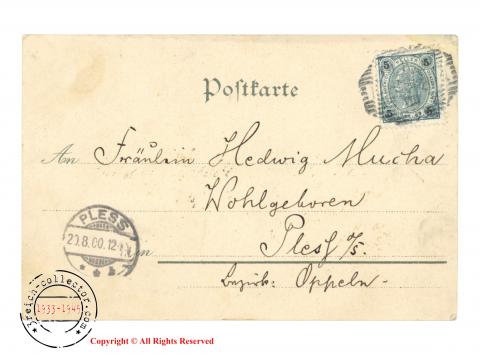 Postkarte
5 5
5 5
An Fräulein Hedwig Mucha
Wohlgeboren
in Pless O/S.
Bezirk: Oppeln-
PLESS
20.8.00.12-1N.
3reich-collector.com
1933-1945
Copyright © All Rights Reserved